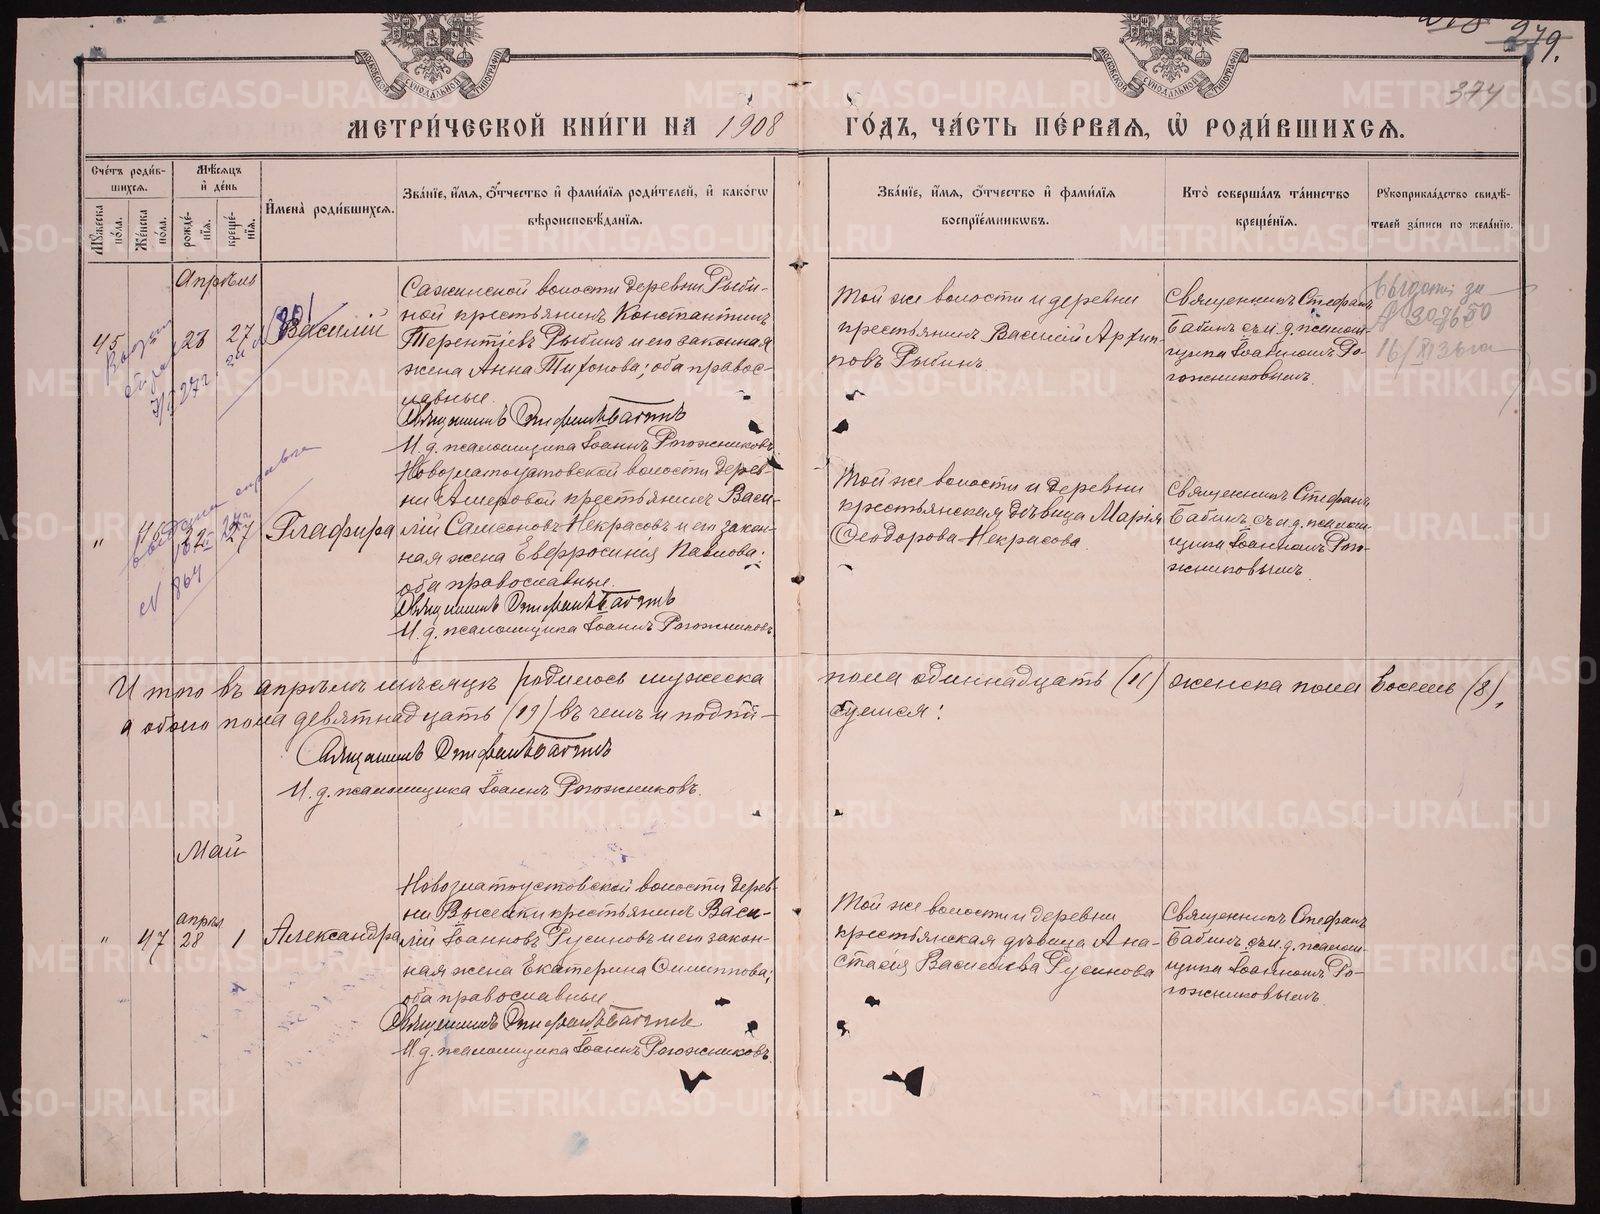 279.
374
МОСКОВСКОЙ СѴНОДАЛЬНОЙ ТИПОГРАФІИ
МОСКОВСКОЙ СѴНОДАЛЬНОЙ ТИПОГРАФІИ
МЕТРИ́ЧЕСКОЙ КНИ́ГИ НА 1908 ГО́ДЪ, ЧА́СТЬ ПЕ́РВАЯ, Ѡ҆ РОДИ́ВШИХСЯ.
Сче́тъ роди́в-
шихся.
Мѣ́сяцъ
и҆ де́нь
Мꙋ́жеска по́ла.
Же́нска по́ла.
рожде́-
нїя.
креще́-
нїя.
И҆мена̀ роди́вшихся.
Зва́нїе, и҆́мя, ѻ҆́тчество и҆ фами́лїя роди́телей, и҆ како́гѡ
вѣроисповѣ́данїя.
Зва́нїе, и҆́мя, ѻ҆́тчество и҆ фами́лїя
воспрїе́мникѡвъ.
Кто̀ соверша́лъ та́инство
креще́нїя.
Рꙋкоприкла́дство свидѣ́-
телей за́писи по жела́нїю.
Апрѣль
45
23
27
Василій
Сажинской волости деревни Рыби-
ной крестьянинъ Константинъ
Терентіевъ Рыбинъ и его законная
жена Анна Тихонова; оба правос-
лавные.
Священникъ Стефанъ Бабинъ
И. д. псаломщика Іоаннъ Рогожниковъ
Той же волости и деревни
крестьянинъ Василій Архип-
повъ Рыбинъ.
Священникъ Стефанъ
Бабинъ съ и. д. псалом-
щика Іоанномъ Ро-
гожниковымъ.
"
46
22
27
Глафира
Новозлатоустовской волости дерев-
ни Ашеровой крестьянинъ Васи-
лій Самсоновъ Некрасовъ и его закон-
ная жена Евфросинія Павлова;
оба православные.
Священникъ Стефанъ Бабинъ
И. д. псаломщика Іоаннъ Рогожниковъ
Той же волости и деревни
крестьянская дѣвица Марія
Ѳеодорова Некрасова.
Священникъ Стефанъ
Бабинъ съ и. д. псалом-
щика Іоанномъ Рого-
жниковымъ.
№ 864
Итого въ апрѣлѣ мѣсяцѣ родилось мужеска пола одиннадцать (11) женска пола восемь (8),
а обоего пола девятнадцать (19) въ чемъ и подпи-
суемся:
Священникъ Стефанъ Бабинъ
И. д. псаломщика Іоаннъ Рогожниковъ.
Май
"
47
апрѣл
28
1
Александра
Новозлатоустовской волости дерев-
ни Выселки крестьянинъ Васи-
лій Іоанновъ Русиновъ и его закон-
ная жена Екатерина Филиппова;
оба православные.
Священникъ Стефанъ Бабинъ
И. д. псаломщика Іоаннъ Рогожниковъ
Той же волости и деревни
крестьянская дѣвица Ана-
стасія Васильева Русинова
Священникъ Стефанъ
Бабинъ съ и. д. псалом-
щика Іоанномъ Ро-
гожниковымъ.
METRIKI.GASO-URAL.RU